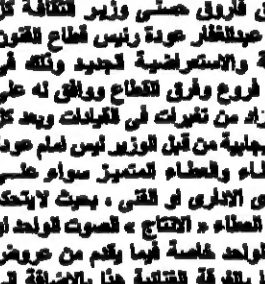 فاروق حسنى وزير الثقافة كل
عبدالغفار عودة رئيس قطاع الفنون
والاستعراضية الجديد وذلك فى
فروع وفرق القطاع ووافق له على
من تغيرات فى القيادات وبعد كل
من قبل الوزير ليس أمام عودة
والعطاء المتميز سواء على
الادارى أو الفنى ، بحيث لايتحكم
العطاء « الانتاج » الصوت الواحد أو
الواحد خاصة فيما يقدم من عروض
الفرقة الغنائية هذا بالاضافة الى